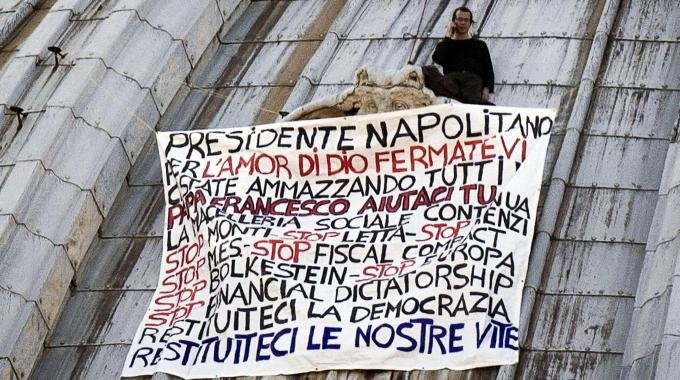 PRESIDENTE NAPOLITANO
PER L'AMOR DI DIO FERMATEVI
CI STATE AMMAZZANDO TUTTI
PAPA FRANCESCO AIUTACI TU
LA MACELLERIA SOCIALE CONTINUA
STOP MONTI - STOP LETTA - STOP
STOP MES - STOP FISCAL COMPACT
STOP BOLKESTEIN - STOP EUROPA
STOP FINANCIAL DICTATORSHIP
RESTITUITECI LA DEMOCRAZIA
RESTITUITECI LE NOSTRE VITE